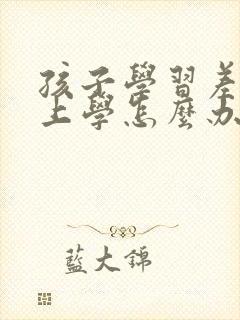 孩子學習差
上學怎麼办
藍大錦